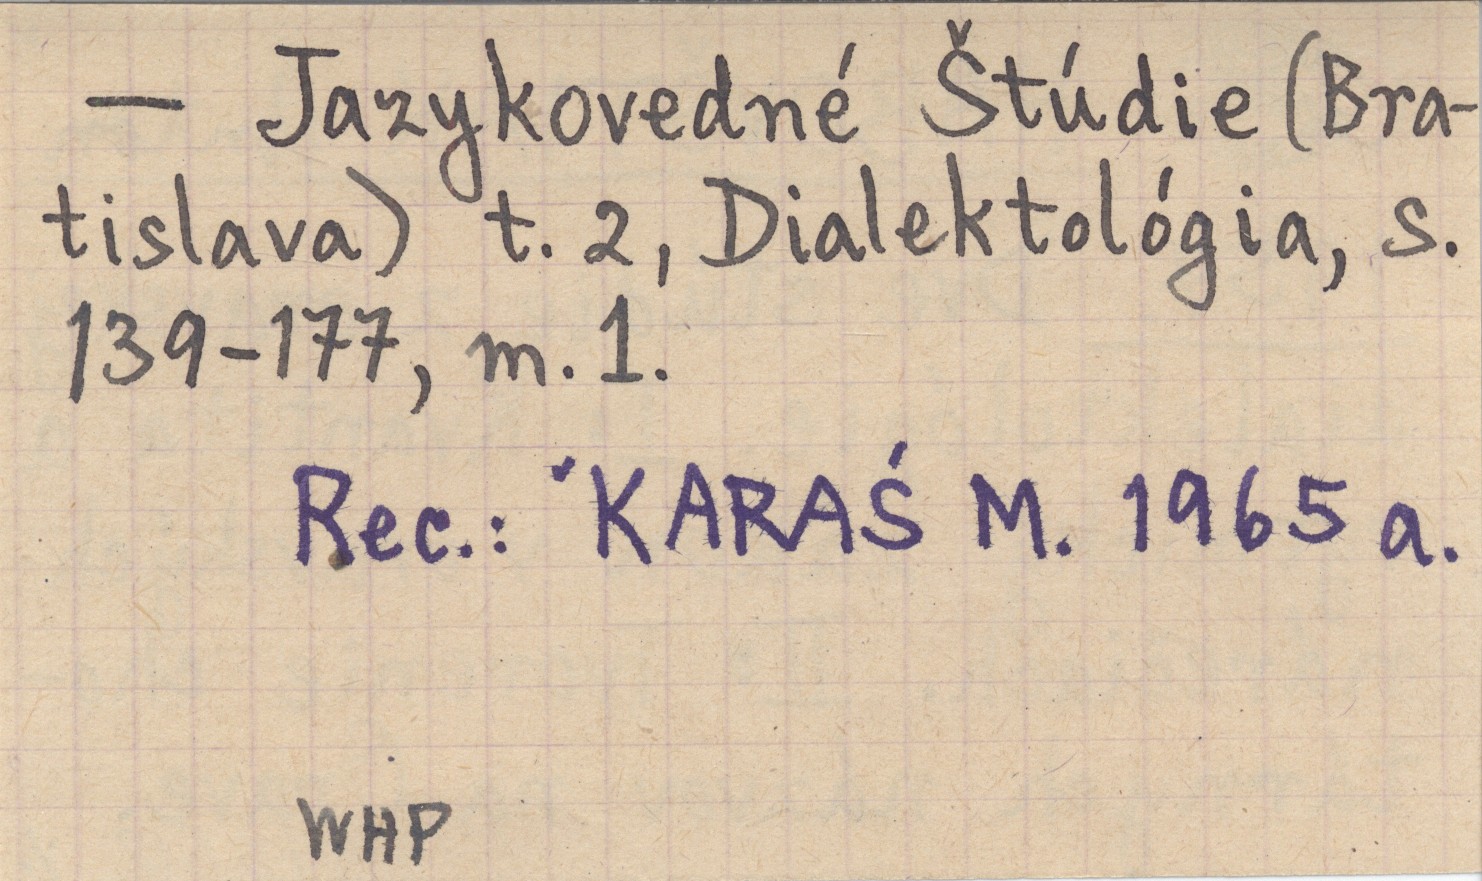 — Jazykovedné Štúdie (Bra-
tislava) t. 2, Dialektológia, s.
139-177, m. 1.
Rec.: KARAŚ M. 1965 a.
WHP